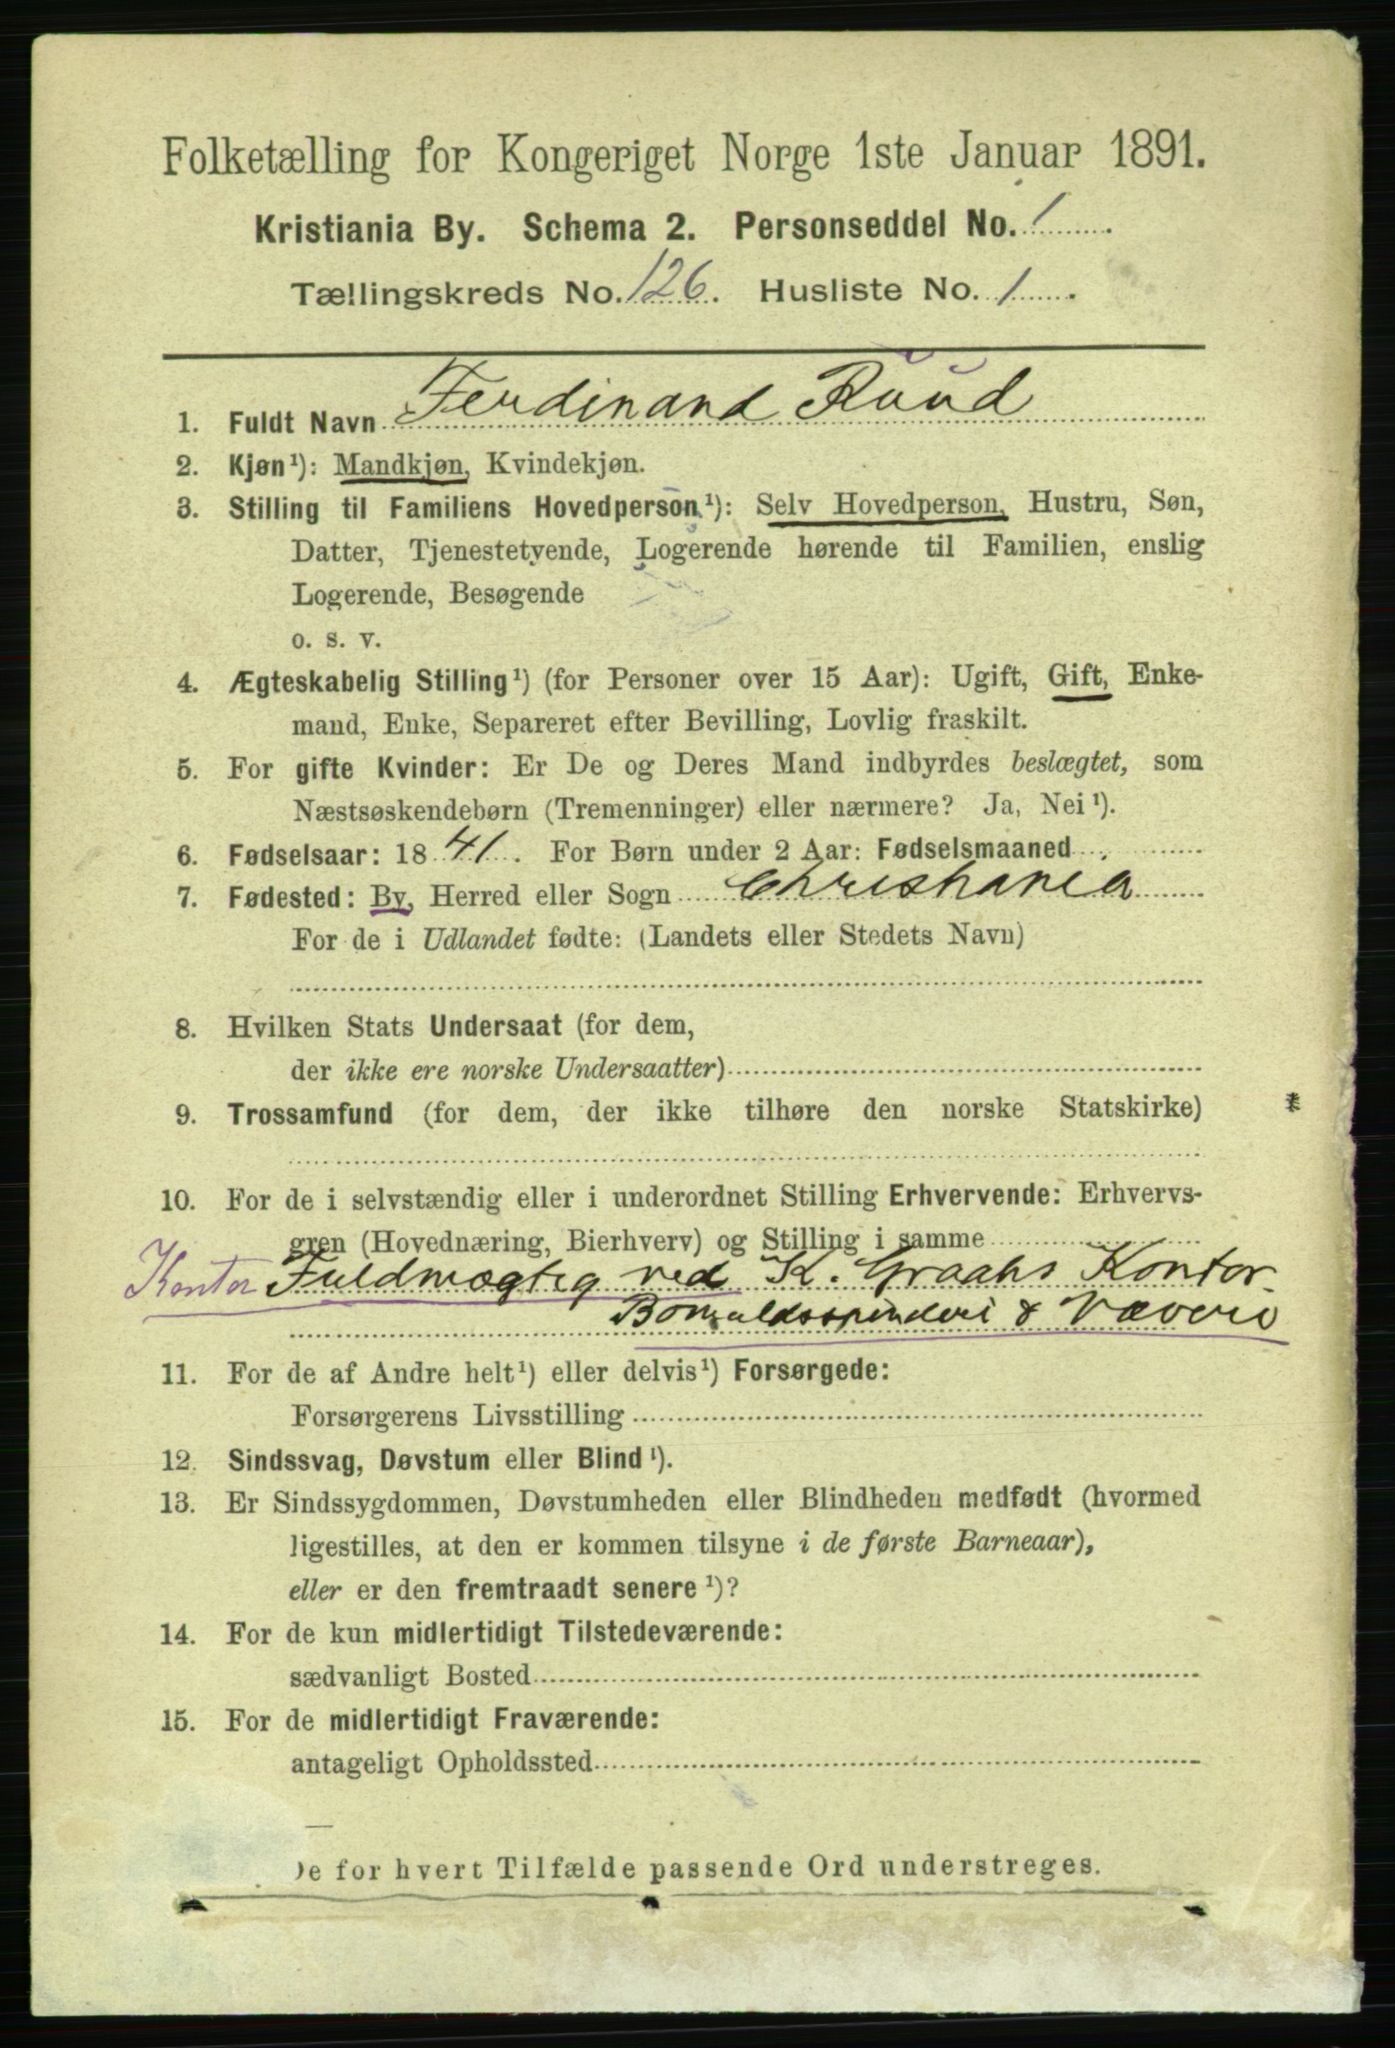 Folketælling for Kongeriget Norge 1ste Januar 1891.
Kristiania By. Schema 2. Personseddel No. 1.
Tællingskreds No. 126. Husliste No. 1.
1. Fuldt Navn Ferdinand Ruud
2. Kjøn¹): Mandkjøn, Kvindekjøn.
3. Stilling til Familiens Hovedperson¹): Selv Hovedperson, Hustru, Søn,
Datter, Tjenestetyende, Logerende hørende til Familien, enslig
Logerende, Besøgende
o. s. v.
4. Ægteskabelig Stilling¹) (for Personer over 15 Aar): Ugift, Gift, Enke-
mand, Enke, Separeret efter Bevilling, Lovlig fraskilt.
5. For gifte Kvinder: Er De og Deres Mand indbyrdes beslægtet, som
Næstsøskendebørn (Tremenninger) eller nærmere? Ja, Nei¹).
6. Fødselsaar: 1841. For Børn under 2 Aar: Fødselsmaaned
7. Fødested: By, Herred eller Sogn Christiania
For de i Udlandet fødte: (Landets eller Stedets Navn)
8. Hvilken Stats Undersaat (for dem,
der ikke ere norske Undersaatter)
9. Trossamfund (for dem, der ikke tilhøre den norske Statskirke)
10. For de i selvstændig eller i underordnet Stilling Erhvervende: Erhvervs-
gren (Hovednæring, Bierhverv) og Stilling i samme
Kontor Fuldmægtig ved K. Graahs Kontor
Bomuldsspinderi & Væveri
11. For de af Andre helt¹) eller delvis¹) Forsørgede:
Forsørgerens Livsstilling
12. Sindssvag, Døvstum eller Blind¹).
13. Er Sindssygdommen, Døvstumheden eller Blindheden medfødt (hvormed
ligestilles, at den er kommen tilsyne i de første Barneaar),
eller er den fremtraadt senere¹)?
14. For de kun midlertidigt Tilstedeværende:
sædvanligt Bosted
15. For de midlertidigt Fraværende:
antageligt Opholdssted
De for hvert Tilfælde passende Ord understreges.